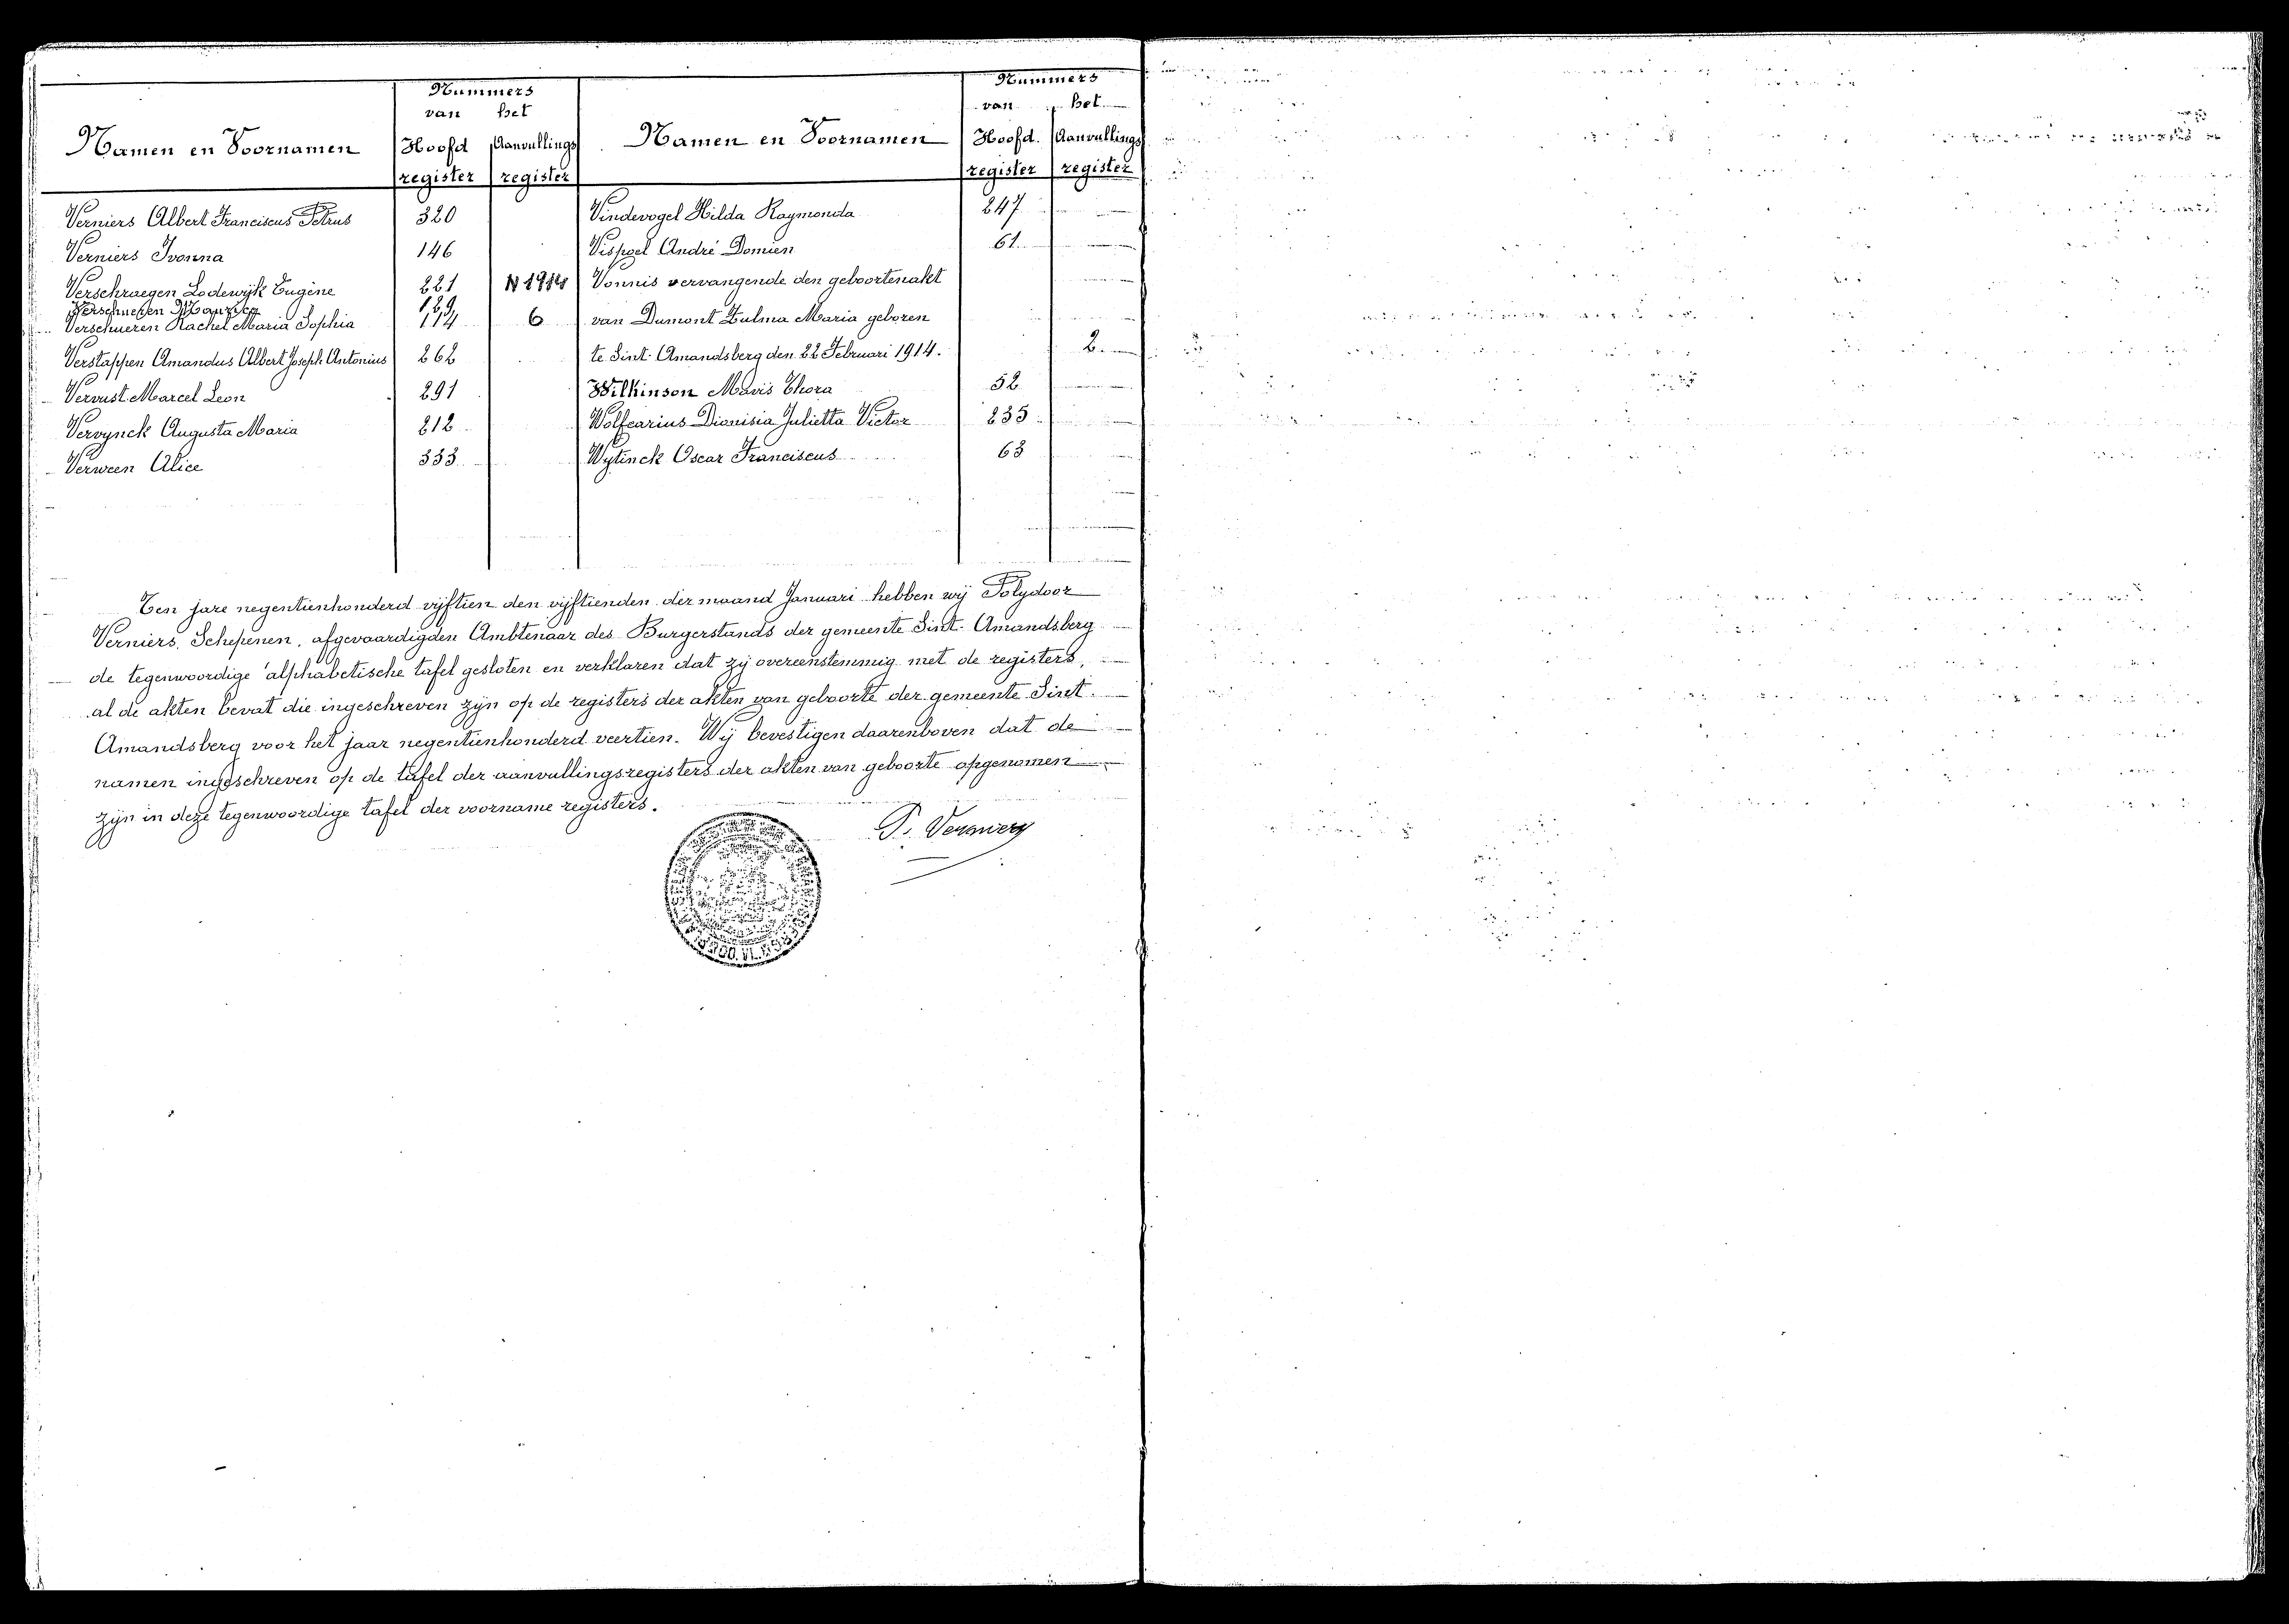 Nummers
van het
Namen en Voornamen Hoofd Aanvullings
register register
Verniers Albert Franciscus Petrus 320
Verniers Ivonna 146
Verschraegen Lodewijk Eugène 221
Verschueren Maurice 129
Verschueren Rachel Maria Sophia 114 6
Verstappen Amandus Albert Joseph Antonius 262
Vervust Marcel Leon 291
Vervynck Augusta Maria 212
Verween Alice 333
Nummers
van het
Namen en Voornamen Hoofd. Aanvullings
register register
Vindevogel Hilda Raymonda 247
Vispoel André Domien 61
Vonnis vervangende den geboortenakt
van Dumont Zulma Maria geboren
te Sint-Amandsberg den 22 Februari 1914. 2
Wilkinson Mavis Thora 52
Wolfcarius Dionisia Julietta Victor 235
Wytinck Oscar Franciscus 63
Ten jare negentienhonderd vijftien den vijftienden der maand Januari hebben wij Polydoor
Verniers, Schepenen, afgevaardigden Ambtenaar des Burgerstands der gemeente Sint-Amandsberg
de tegenwoordige alphabetische tafel gesloten en verklaren dat zij overeenstemmig met de registers,
al de akten bevat die ingeschreven zijn op de registers der akten van geboorte der gemeente Sint-
Amandsberg voor het jaar negentienhonderd veertien. Wij bevestigen daarenboven dat de
namen ingeschreven op de tafel der aanvullingsregisters der akten van geboorte opgenomen
zijn in deze tegenwoordige tafel der voorname registers.